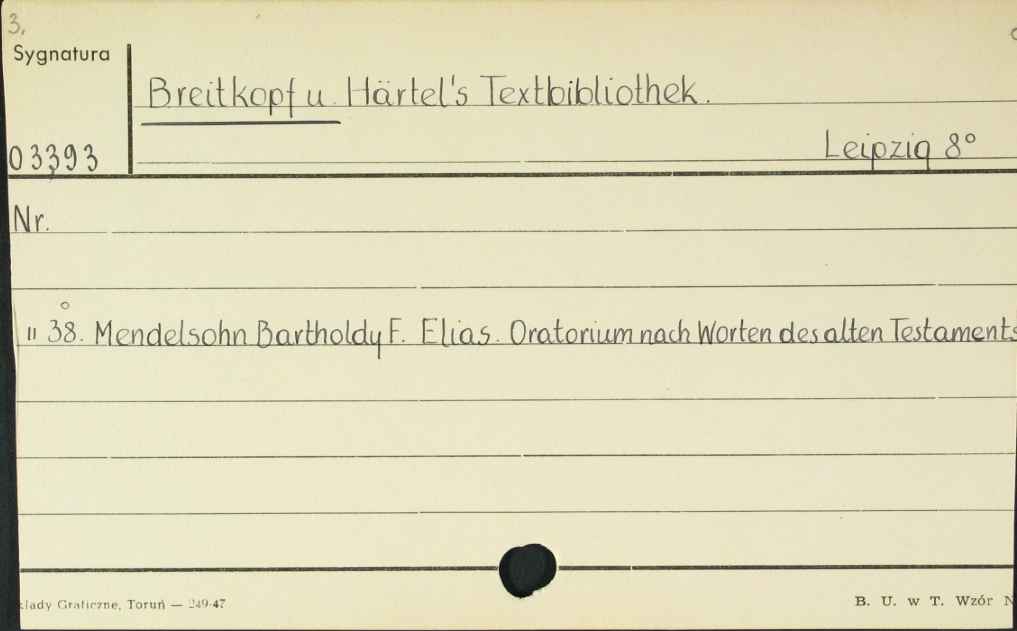 3,
Sygnatura
Breitkopf u. Härtel's Textbibliothek.
Leipzig 8°
03393
Nr.
" 38. Mendelsohn Bartholdy F. Elias. Oratorium nach Worten des alten Testaments
Graficzne, Toruń — 249-47
B. U. w T. Wzór